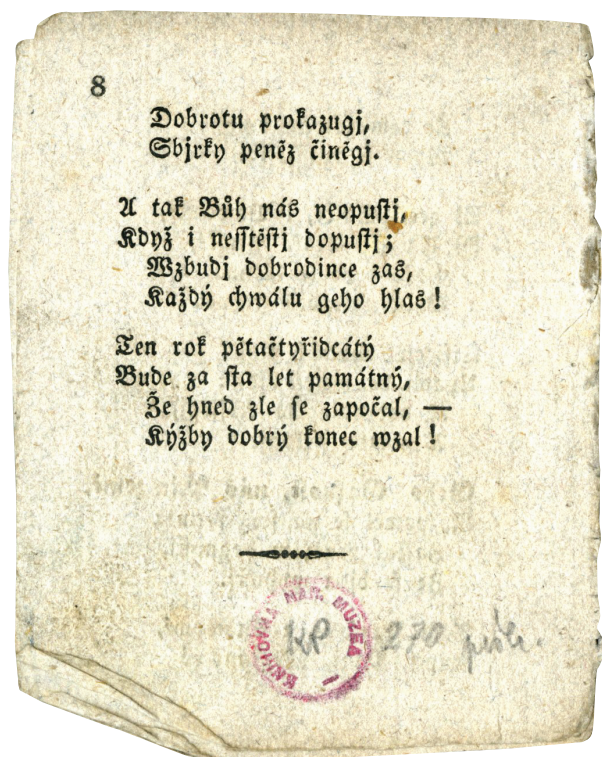 8
Dobrotu prokazugj,
Sbjrky peněz činěgj.
A tak Bůh nás neopustj,
Když i nesstěstj dopustj;
Wzbudj dobrodince zas,
Každý chwálu geho hlas!
Ten rok pětačtyřidcátý
Bude za sta let památný,
Že hned zle se započal, —
Kýžby dobrý konec wzal!
KNIHOVNA NAR. MUZEA
KP 270